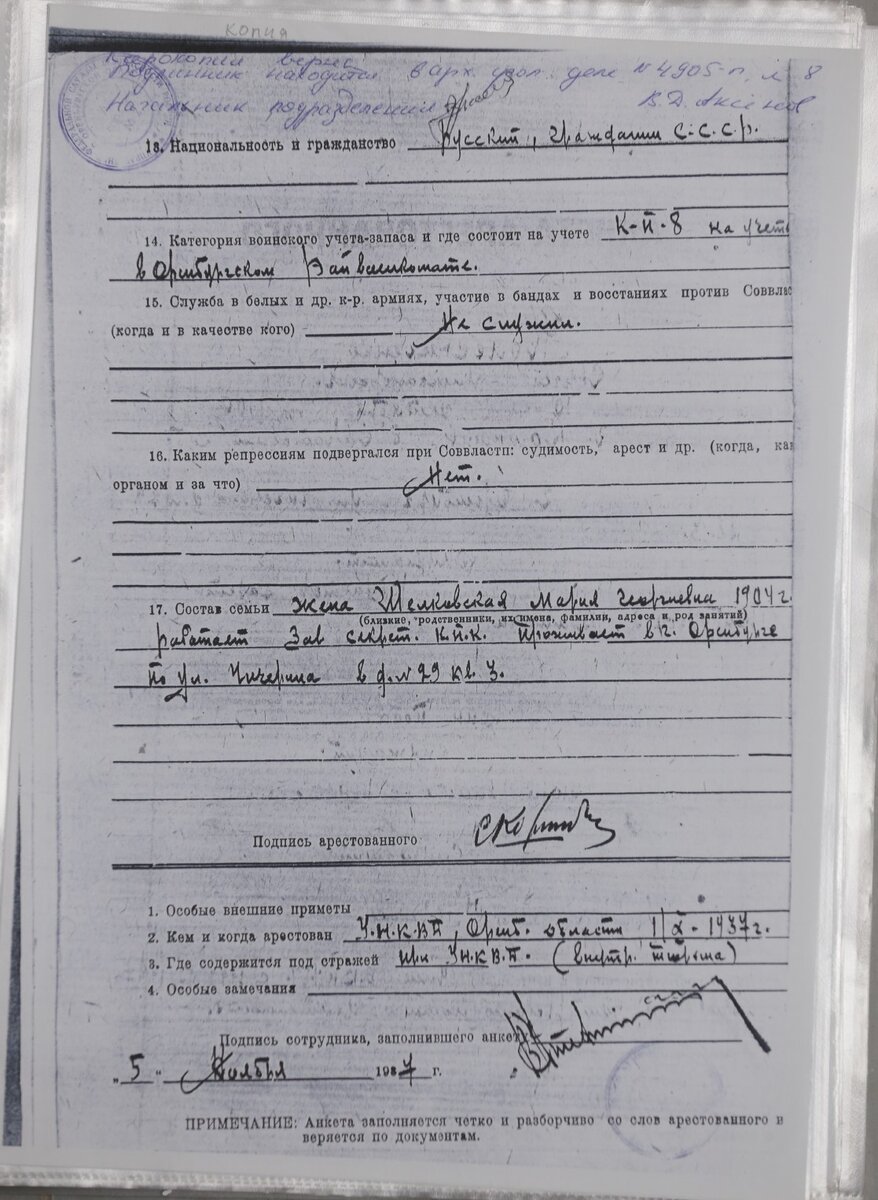 копия
Ксерокопия верна
Подлинник находится в арх. угол. деле № 4905-п, л. 8
Начальник подразделения В.Д. Аксенов
13. Национальность и гражданство Русский, гражданин С.С.С.Р.
14. Категория воинского учета-запаса и где состоит на учете К-П-8 на учете
в Оренбургском Райвоенкомате.
15. Служба в белых и др. к-р. армиях, участие в бандах и восстаниях против Соввлас
(когда и в качестве кого) Не служил.
16. Каким репрессиям подвергался при Соввласти: судимость, арест и др. (когда, как
органом и за что) Нет.
17. Состав семьи жена Шелковская Мария Георгиевна 1904 г.
(близкие, родственники, их имена, фамилии, адреса и род занятий)
работает Зав секрет. К.П.К. Проживает в г. Оренбурге
по ул. Чичерина в д. № 29 кв. 3.
Подпись арестованного
1. Особые внешние приметы
2. Кем и когда арестован У.Н.К.В.Д., Оренб. области 1/X-1937 г.
3. Где содержится под стражей при У.Н.К.В.Д. (внутр. тюрьма)
4. Особые замечания
Подпись сотрудника, заполнившего анкету
„5" Ноября 1937 г.
ПРИМЕЧАНИЕ: Анкета заполняется четко и разборчиво со слов арестованного и
веряется по документам.